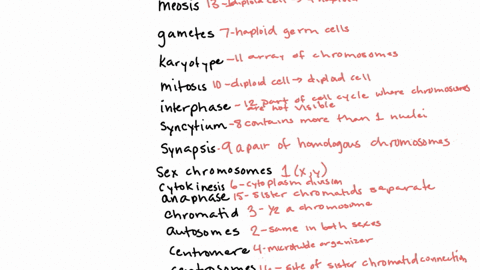 meosis 13-diploid cell → 4 haploid
gametes 7-haploid germ cells
Karyotype -11 array of chromosomes
mitosis 10-diploid cell → diploid cell
interphase -12 part of cell cycle where chromosomes are not visible
Syncytium -8 contains more than 1 nuclei
Synapsis -9 a pair of homologous chromosomes
Sex chromosomes 1 (x,y)
Cytokinesis 6-cytoplasm division
anaphase 15-sister chromatids separate
chromatid 3-1/2 a chromosome
autosomes 2-same in both sexes
Centromere 4-microtubule organizer
centrosomes site of sister chromatid connection